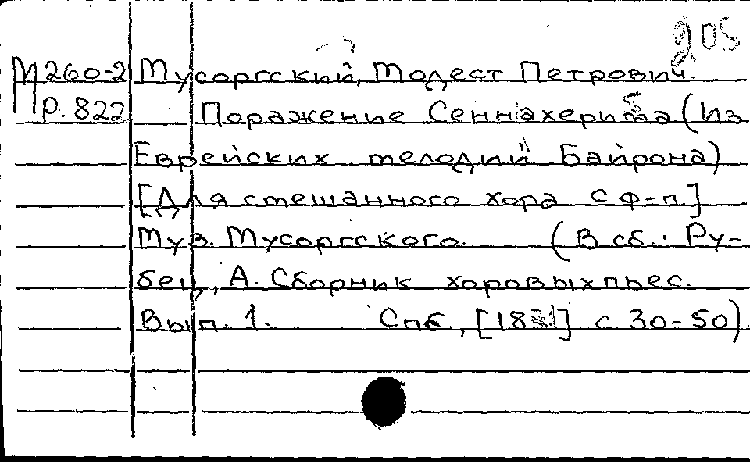 205
М260-2 Мусоргский, Модест Петрович.
Р.822 Поражение Сеннахериба (Из
Еврейских мелодий Байрона)
[Для смешанного хора с ф-п.]
Муз. Мусоргского. (В сб.: Ру-
бец, А. Сборник хоровых пьес.
Вып. 1. Спб, [18 ] с 30-50)